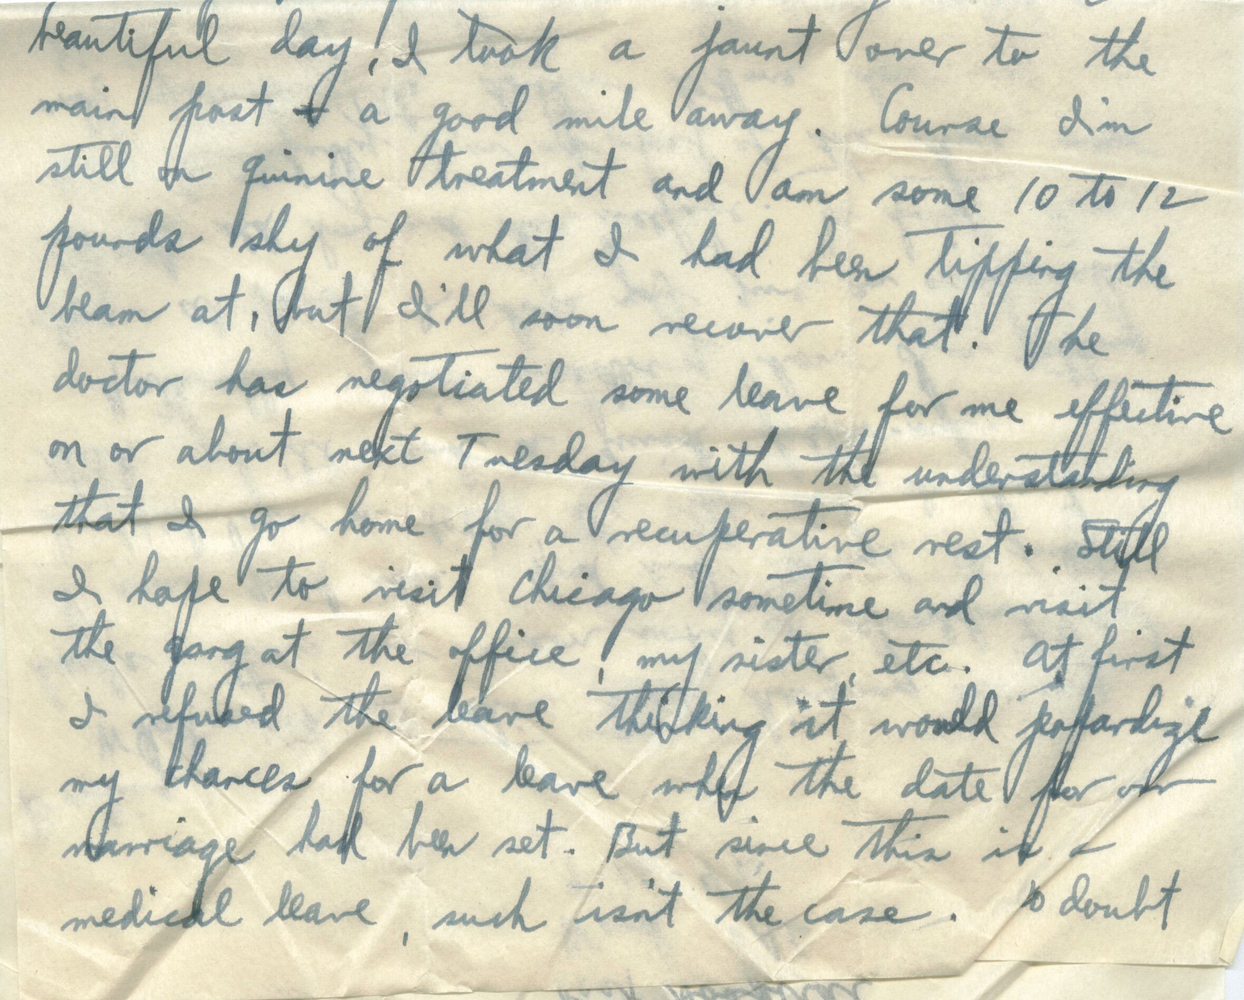 beautiful day, I took a jaunt over to the
main post & a good mile away. Course I'm
still on quinine treatment and am some 10 to 12
pounds shy of what I had been tipping the
beam at, but I'll soon recover that. The
doctor has negotiated some leave for me effective
on or about next Tuesday with the understanding
that I go home for a recuperative rest. Still
I hope to visit Chicago sometime and visit
the gang at the office, my sister, etc. At first
I refused the leave thinking it would jepardize
my chances for a leave when the date for our
marriage had been set. But since this is a
medical leave, such isn't the case. doubt